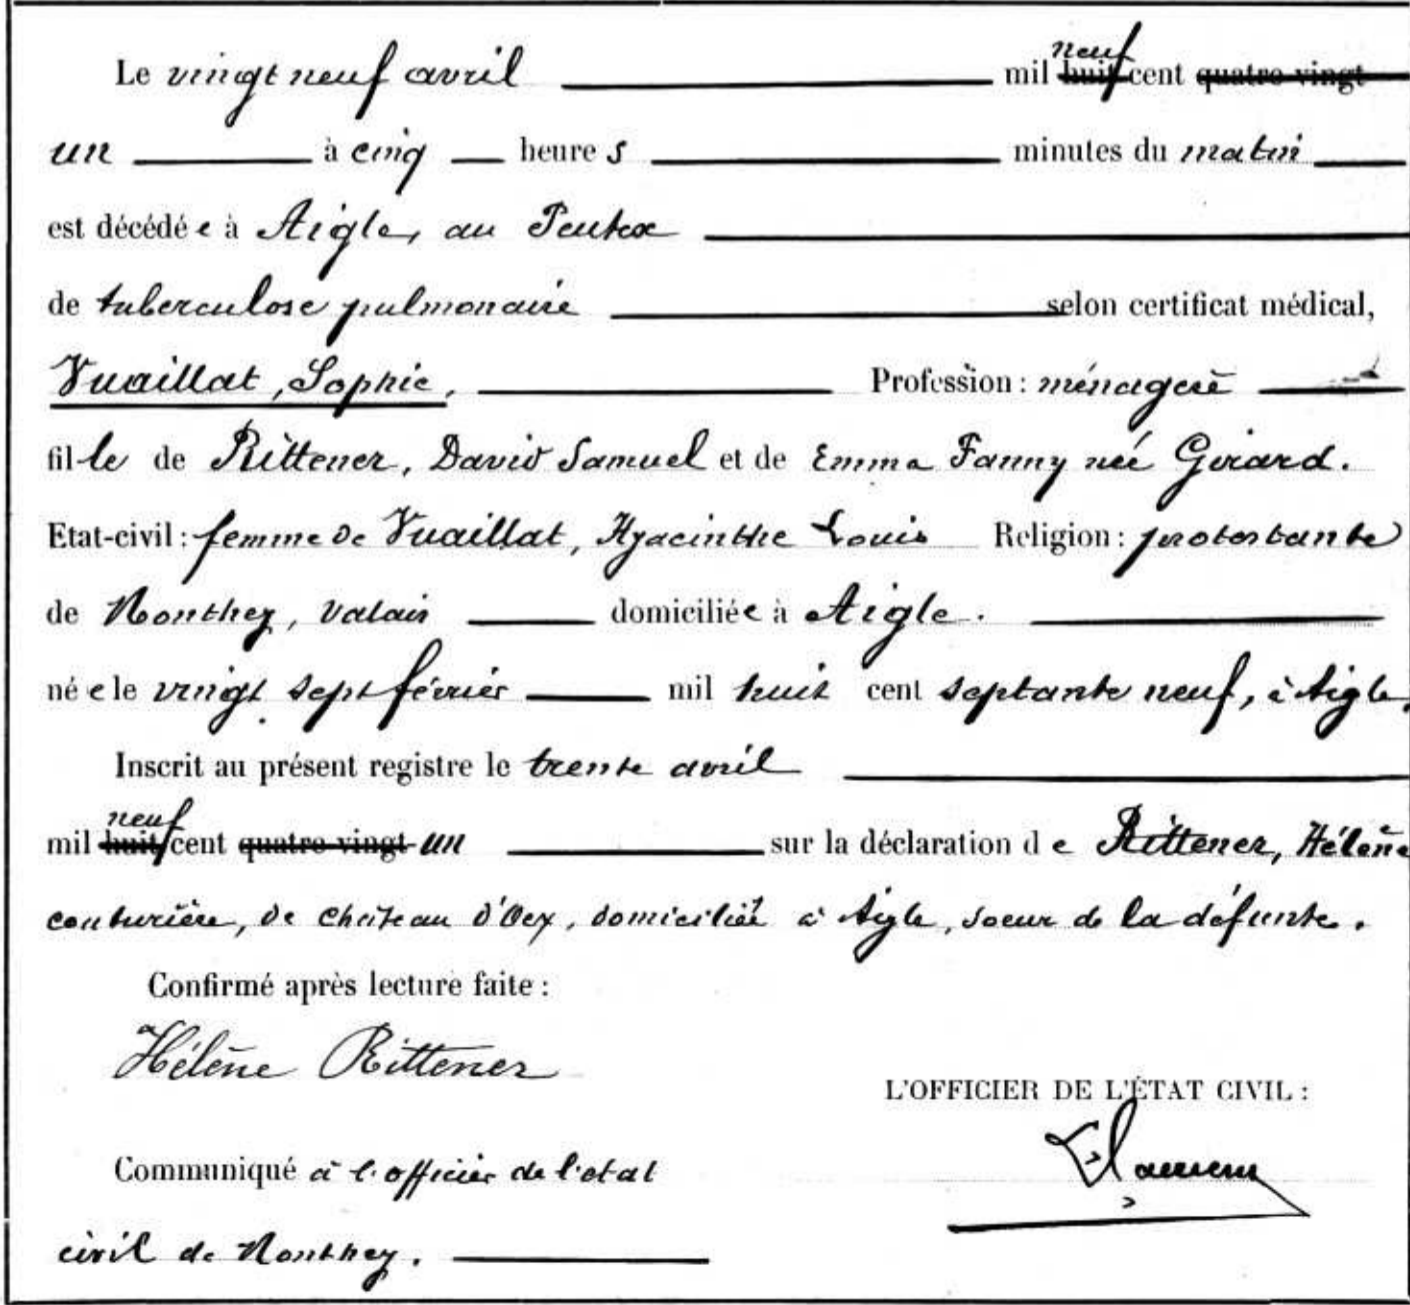 Le vingt neuf avril mil neuf huit cent quatre-vingt
un à cinq heures minutes du matin
est décédée à Aigle, au Pentex
de tuberculose pulmonaire selon certificat médical,
Vuaillat, Sophie, Profession : ménagère
fille de Rittener, David Samuel et de Emma Fanny née Girard.
Etat-civil : femme de Vuaillat, Hyacinthe Louis Religion : protestante
de Monthey, Valais domiciliée à Aigle.
née le vingt sept février mil huit cent septante neuf, à Aigle.
Inscrit au présent registre le trente avril
mil neuf huit cent quatre-vingt-un sur la déclaration de Rittener, Hélène
couturière, de Château d'Oex, domiciliée à Aigle, soeur de la défunte.
Confirmé après lecture faite :
Hélène Rittener
L'OFFICIER DE L'ÉTAT CIVIL :
Communiqué à l'officier de l'état
civil de Monthey.